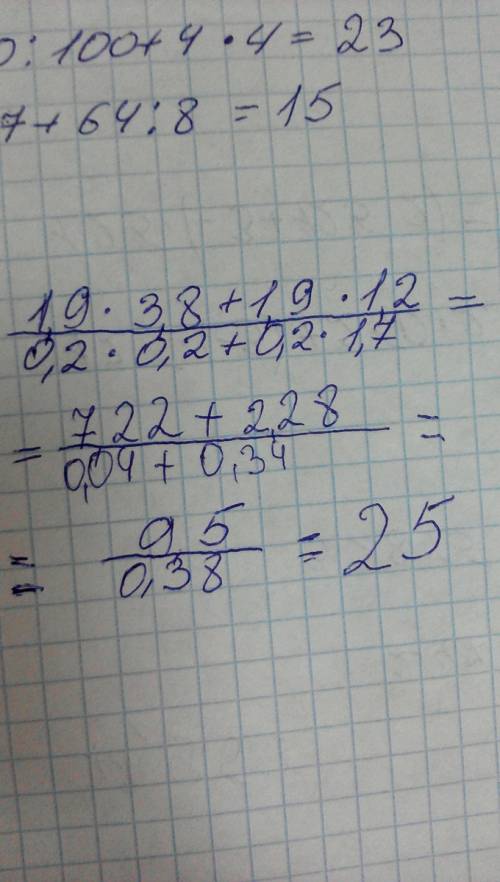 0:100+4·4=23
7+64:8=15
1,9·3,8+1,9·1,2 =
0,2·0,2+0,2·1,7
= 722+2,28 =
0,04+0,34
= 95 = 25
0,38